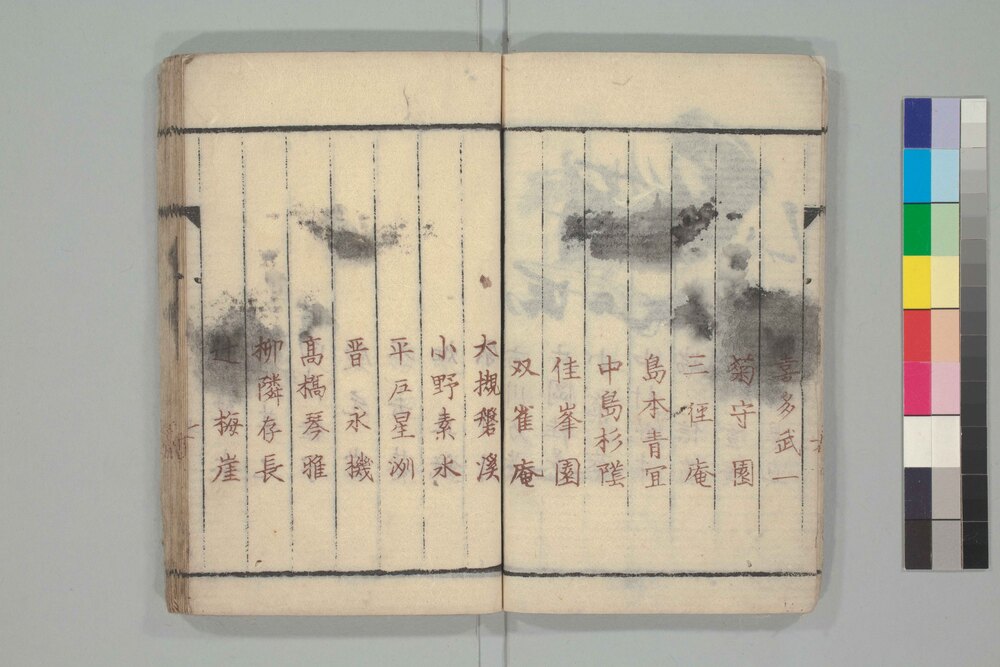 喜多武一
菊守園
三徑庵
島本青宜
中島杉蔭
佳峯園
双雀庵
大槻磐溪
小野素水
平戸星洲
晋永機
高橋琴雅
柳隣存長
辻梅崖